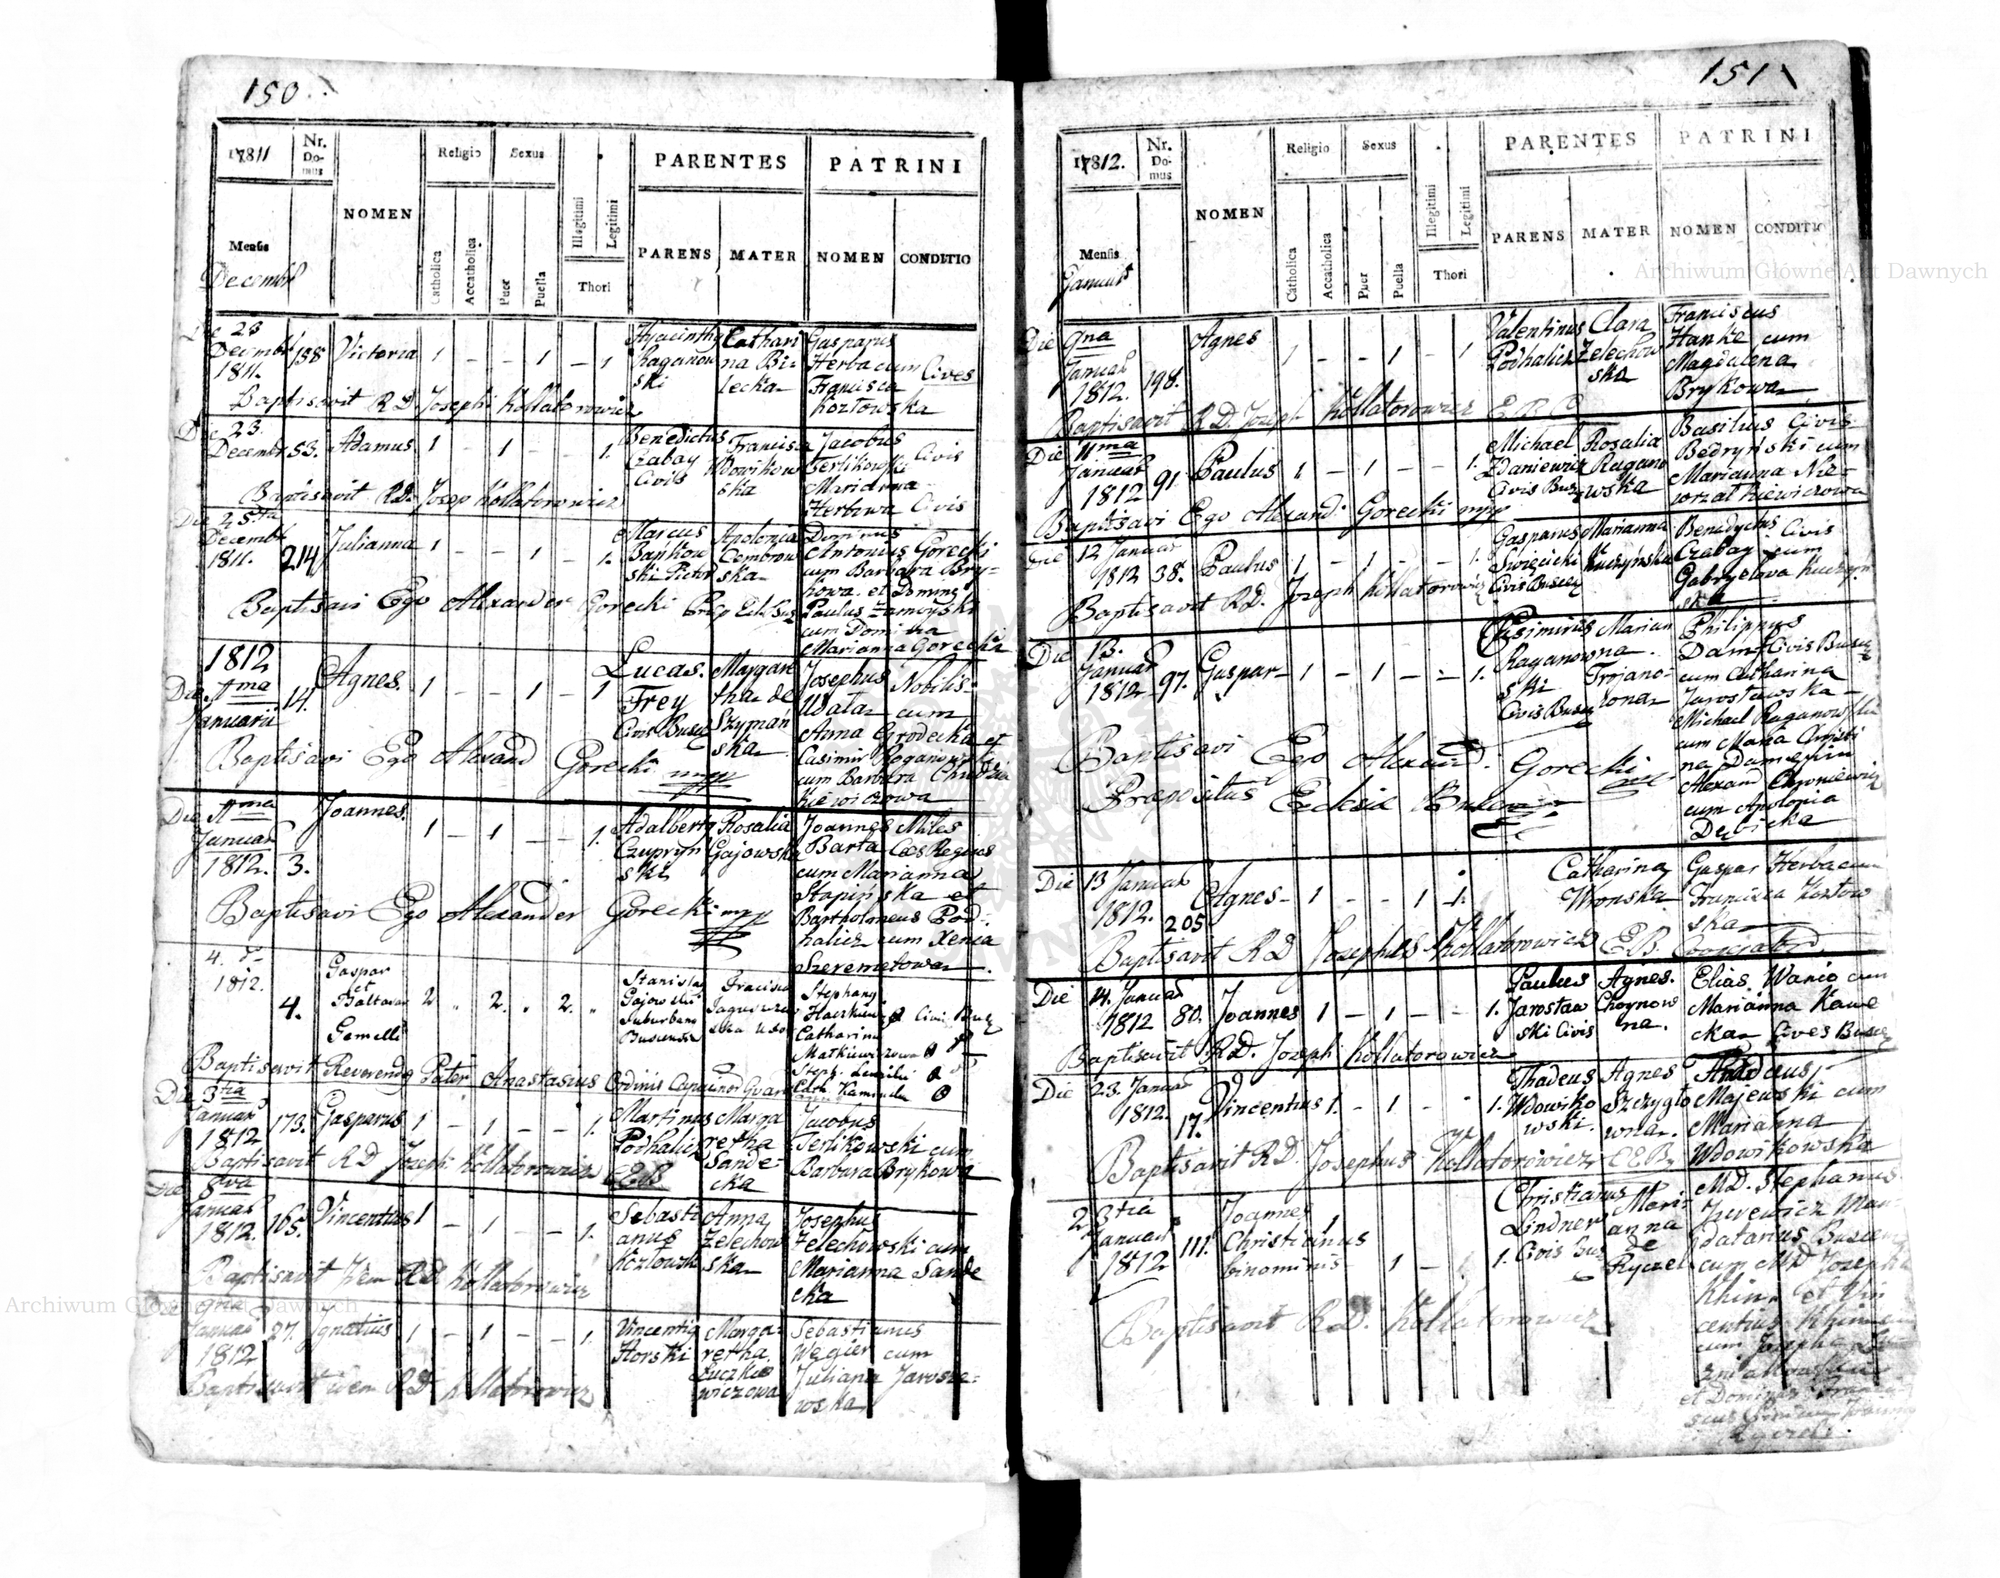 150
17811
Nr. Domus
NOMEN
Religio
Sexus
Catholica
Accatholica
Puer
Puella
Illegitimi
Legitimi
Thori
PARENTES
PATRINI
PARENS
MATER
NOMEN
CONDITIO
Mensis
Decembr
Die 23
Decembr 158 Victoria 1 - - 1 - 1
1811.
Hyacinthg
Raganow
ski
Cathari
na Bi-
lecka
Gasparus
Herba cum Cives
Francisca
Kozłowska
Baptisavit RD. Joseph Kollatorowicz
Die 23.
Decembr 53. Adamus 1 - 1 - - 1.
Benedictus
Czabay
Civis
Francisca
Wdowikow
ska
Jacobus Civis
Terlikowski
Marianna
Herbwa Civis
Baptisavit RD. Josep Kollatorowicz
Die 25.ta
Decembr
1811. 214 Julianna 1 - - 1 - 1.
Marcus
Bankow
ski
Apolonia
Cembrow
ska
Dominus
Antonius Gorecki
cum Barbara Bry-
kowa et
Paulus Zamoyski
cum Domina
Marianna Gorecki
Baptisavi Ego Alexander Gorecki
1812
Die 1ma
Januarii 14. Agnes. 1 - - 1 - 1
Lucas.
Frey
Civis Busc
Margare
tha de
Szymań
ska
Josephus Nobilis
Udata cum
Anna Grodecka et
Casimir Roganowski
cum Barbara
kiewiczowa
Baptisavi Ego Alexand Gorecki mpp
Die 1ma
Januar
1812. 3. Joannes. 1 - 1 - - 1.
Adalbertg
Czupryn
ski
Rosalia
Gajowska
Joannes Miles
Barta Cæs Regius
cum Marianna
Stapińska et
Bartholomeus Pod-
halicz cum Xenia
Szeremetowa
Baptisavi Ego Alexander Gorecki mpp
4.
1812.
4. Gaspar
et
Baltasar
Gemelli
2 " 2. " 2. "
Stanislay
Gajowski
Suburbang
Stephang
Catharina
Matkiewiczowa
Baptisavit Reverendg Pater Anastasius Ordinis Capucinor
Die 3tia
Januar
1812 173. Gasparus 1 - 1 - - 1.
Martinus
Podhalicz
Marga
retha
Sande-
cka
Jacobus
Terlikowski cum
Barbara Brykowa
Baptisavit RD Joseph Kollatorowicz CEB
Die 8va
Januar
1812. 165. Vincentius 1 - 1 - - 1.
Sebasti
anus
Kozłowsk
Anna
Zelechow
ska
Josephus
Zelechowski cum
Marianna Sande
cka
Baptisavit Idem RD Kollatorowicz
9na
Januar 27. Ignatius 1 - 1 - - 1.
1812
Vincentig
Horski
Marga-
retha
Łuczkie
wiczowa
Sebastianus
Węgier cum
Juliana Jarosze-
wska
Baptisavit idem RD Kollatorowicz
151
17812.
Nr. Domus
NOMEN
Religio
Sexus
Catholica
Accatholica
Puer
Puella
Illegitimi
Legitimi
Thori
PARENTES
PATRINI
PARENS
MATER
NOMEN
CONDITIO
Mensis
Januar
Die 9na
Januar
1812. 198. Agnes 1 - - 1 - 1
Valentinus
Podhalicz
Clara
Zelechow
ska
Franciscus
Hanke cum
Magdalena
Brykowa
Baptisavit RD. Joseph Kollatorowicz
Die 11ma
Januar
1812 91. Paulus 1 - 1 - - 1.
Michael
Zdaniewicz
Civis Busc
Rosalia
Ragano
wska
Basilius Civis
Bedryński cum
Marianna Nie-
Baptisavi Ego Alexand: Gorecki mpp
Die 12 Januar
1812 38. Paulus 1 - 1 - - 1.
Gasparus
Swięcicki
Civis Buscen
Marianna
Kuczyńska
Benedyctus Civis
Czabay cum
Gabryelowa Kuczyń
ska
Baptisavit RD. Joseph Kollatorowicz
Die 13.
Januar
1812 97. Gaspar - 1 - 1 - - 1.
Casimirus
Raganow
ski
Civis Busc
Marian
na.
Trojano-
wna
Philippus
Dam Civis Busce
cum Catharina
Jarosławska
Michael Raganowski
cum Maria Christi
na Dam
Alexand Chroniewicz
cum Apolonia
Dębicka
Baptisavi Ego Alexand: Gorecki
Præpositus Eclesiæ
Die 13 Januar
1812. 205 Agnes - 1 - - 1 1.
Catharina
Wronska
Gaspar Herba cum
Francisca Kozłow
ska
Baptisavit RD Josephus Kollatorowicz EB. Cooperator
Die 14. Januar
1812 80. Joannes 1 - 1 - - 1.
Paulus
Jarosław
ski Civis
Agnes.
Choynow
na.
Elias Wanio cum
Marianna Kawe
cka Cives Busce
Baptisavit RD. Joseph Kollatorowicz
Die 23. Januar
1812. 17. Vincentius 1. - 1 - - 1.
Thadeus
Wdowiko
wski.
Agnes
Szczygło
wna.
Thadeus
Majewski cum
Marianna
Wdowikowska
Baptisavit RD. Josephus Kollatorowicz CEB
23tia
Januar
1812 111. Joannes
Christianus
binominis 1 - 1 - - 1.
Christianus
Lindner
Civis Bus
Mari-
anna
de
Ryczel
MD. Stephanus
Jurewicz Man-
datarius Buscen
cum MD Josepha
Khinn et Vin
centius Khinn
cum Josepha
et Dominus
Baptisavit RD. Kollatorowicz
Archiwum Główne Akt Dawnych
Archiwum Główne Akt Dawnych